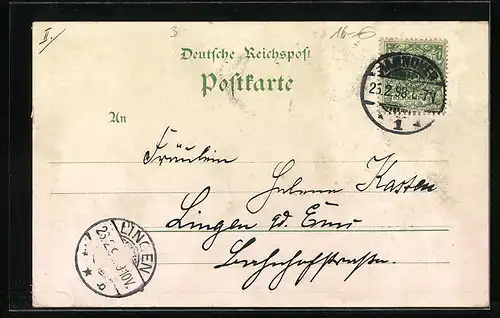 II.
3
16-€
Deutsche Reichspost
Postkarte
HANNOVER
25.2.98.6-7N
* 1 *
An
Fräulein
Helene Kasten
Lingen a/d. Ems
Bahnhofstraße.
LINGEN